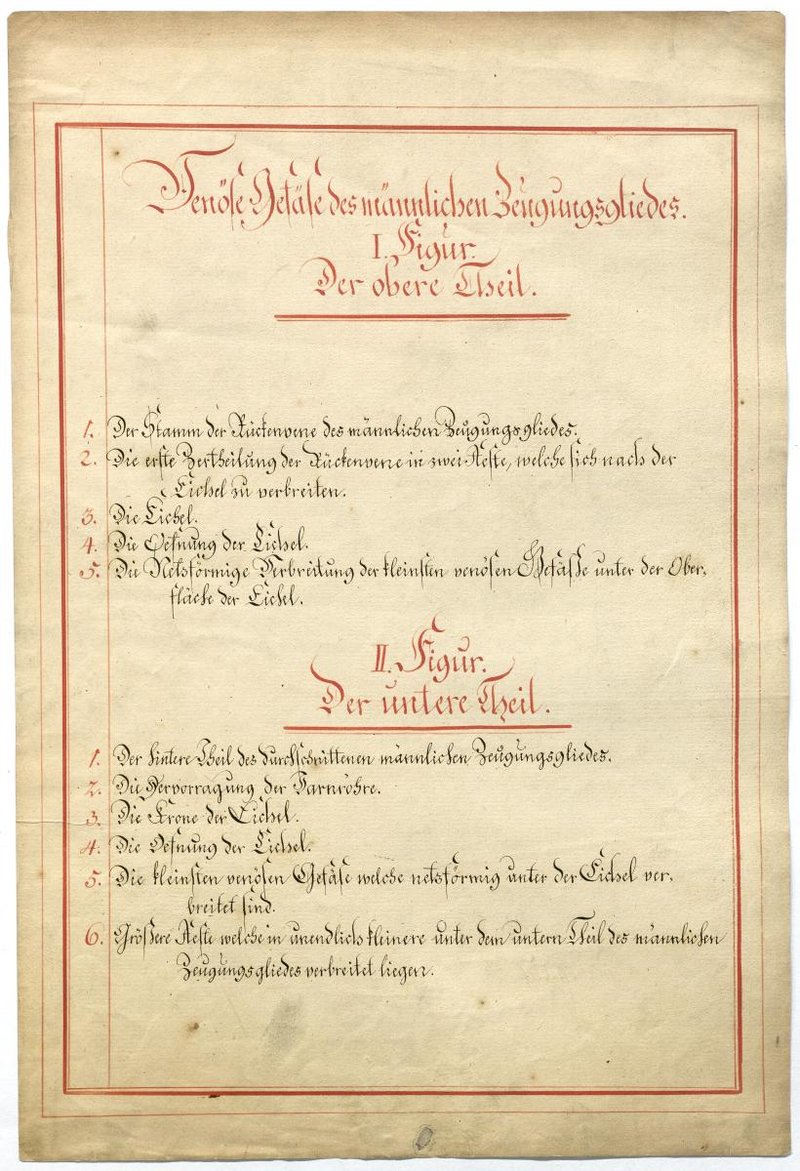 Venöse Gefäße des männlichen Zeugungsgliedes.
I. Figur.
Der obere Theil.
1. Der Stamm der Rückenvene des männlichen Zeugungsgliedes.
2. Die erste Zertheilung der Rückenvene in zwei Aeste, welche sich nach der
Eichel zu verbreiten.
3. Die Eichel.
4. Die Oefnung der Eichel.
5. Die Netsförmige Verbreitung der kleinsten venösen Gefäße unter der Ober-
fläche der Eichel.
II. Figur.
Der untere Theil.
1. Der hintere Theil des durchschnittenen männlichen Zeugungsgliedes.
2. Die Hervorragung der Harnröhre.
3. Die Krone der Eichel.
4. Die Oefnung der Eichel.
5. Die kleinsten venösen Gefäße welche netsförmig unter der Eichel ver-
breitet sind.
6. Größere Aeste welche in unendlich kleinere unter dem untern Theil des männlichen
Zeugungsgliedes verbreitet liegen.